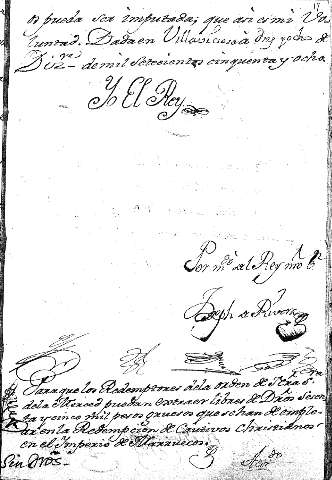 os pueda ser imputada, que asi es mi Vo
luntad. Dada en Villaviciosa à diez y ocho de
Diz.re de mil setecientos cinquenta y ocho.
Yo El Rey
Por m.do del Rey nro S.r
Joseph de Rivera
Para que los Redemptores de la orden de Nra S.ra
de la Merced puedan extraer libres de Dros sesen
ta y cinco mil pesos gruesos que se han de emple
ar en la Redempcion de Cautivos Christianos
en el Imperio de Marruecos.
Sin Dros